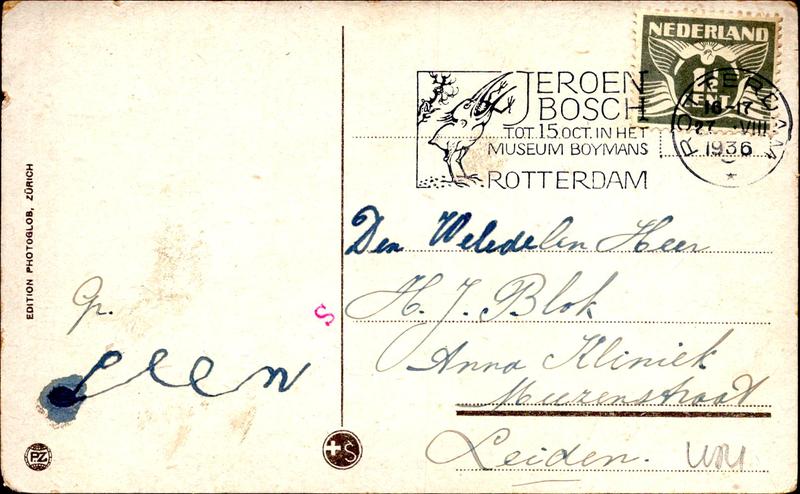 NEDERLAND
JEROEN
BOSCH
TOT 15 OCT. IN HET
MUSEUM BOYMANS
ROTTERDAM
ROTTERDAM
16-17
27 VIII
1936
EDITION PHOTOGLOB, ZÜRICH
Gr.
Leen
S
Den Weledelen Heer
H. J. Blok
Anna Kliniek
Muzenstraat
Leiden.
PZ
+S